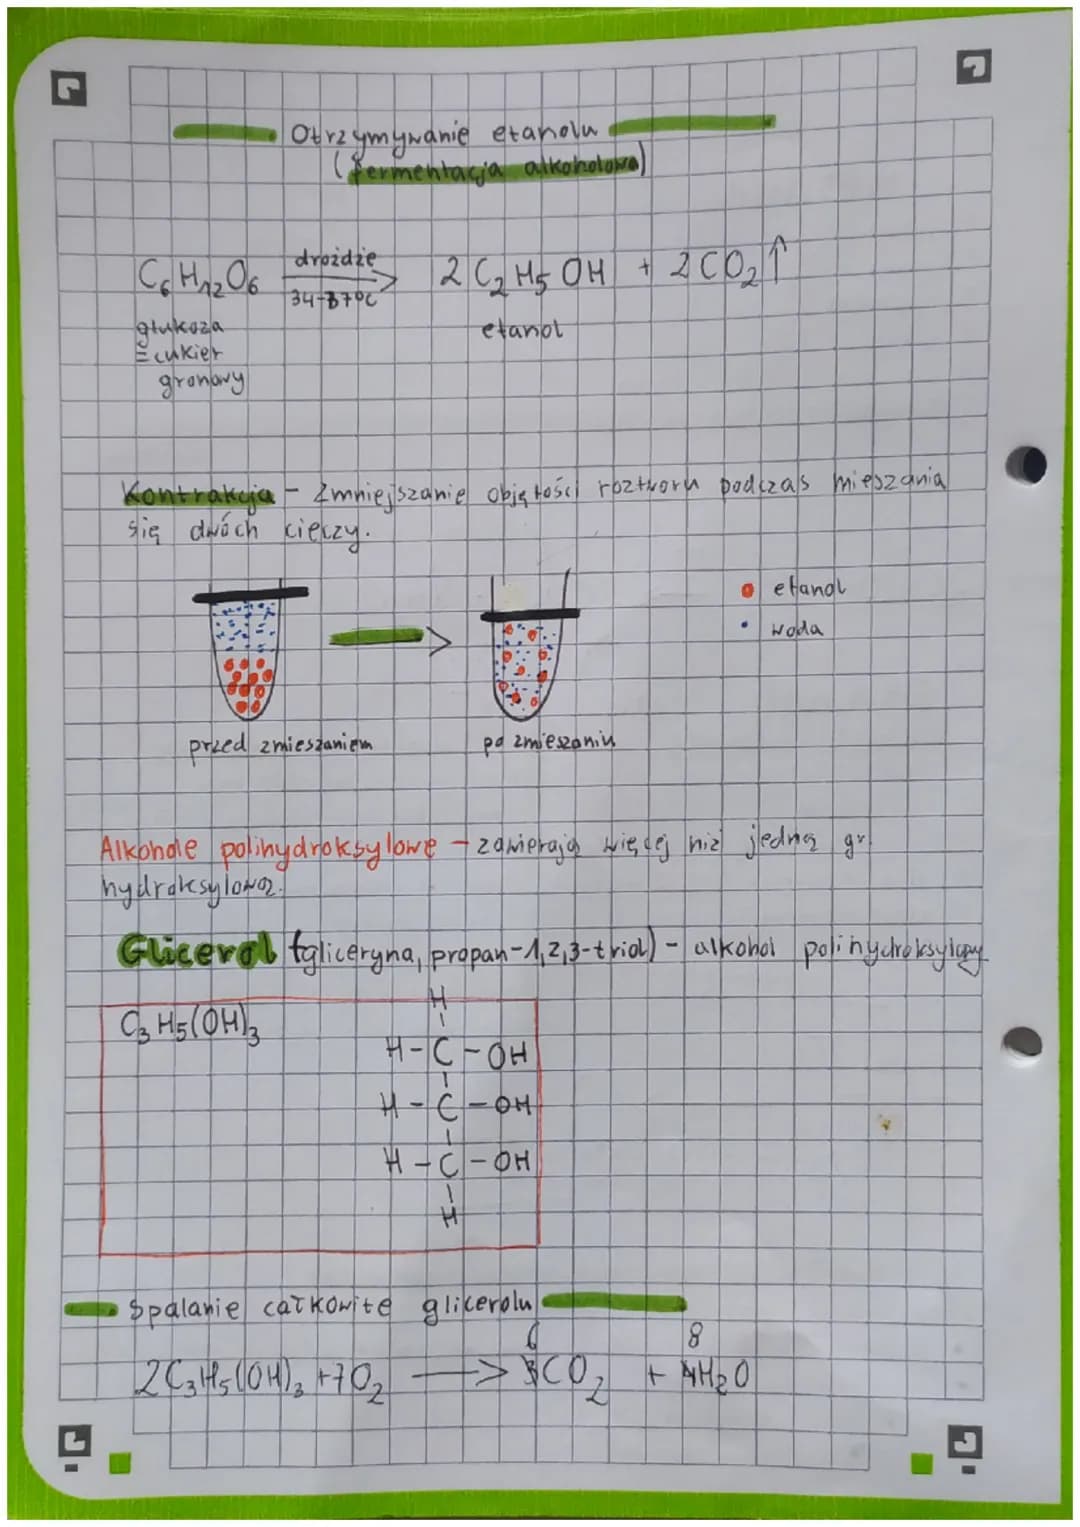 Otrzymywanie etanolu
(fermentacja alkoholowa)
C₆H₁₂O₆ drożdże 34-37°C → 2 C₂H₅OH + 2 CO₂↑
glukoza etanol
= cukier
gronowy
Kontrakcja - zmniejszanie objętości roztworu podczas mieszania
się dwóch cieczy.
etanol
woda
przed zmieszaniem po zmieszaniu
Alkohole polihydroksylowe - zawierają więcej niż jedną gr.
hydroksylową.
Glicerol (gliceryna, propan-1,2,3-triol) - alkohol polihydroksylowy
H
C₃H₅(OH)₃
H-C-OH
H-C-OH
H-C-OH
H
Spalanie całkowite glicerolu
6 8
2C₃H₅(OH)₃ +7O₂ → CO₂ + H₂O